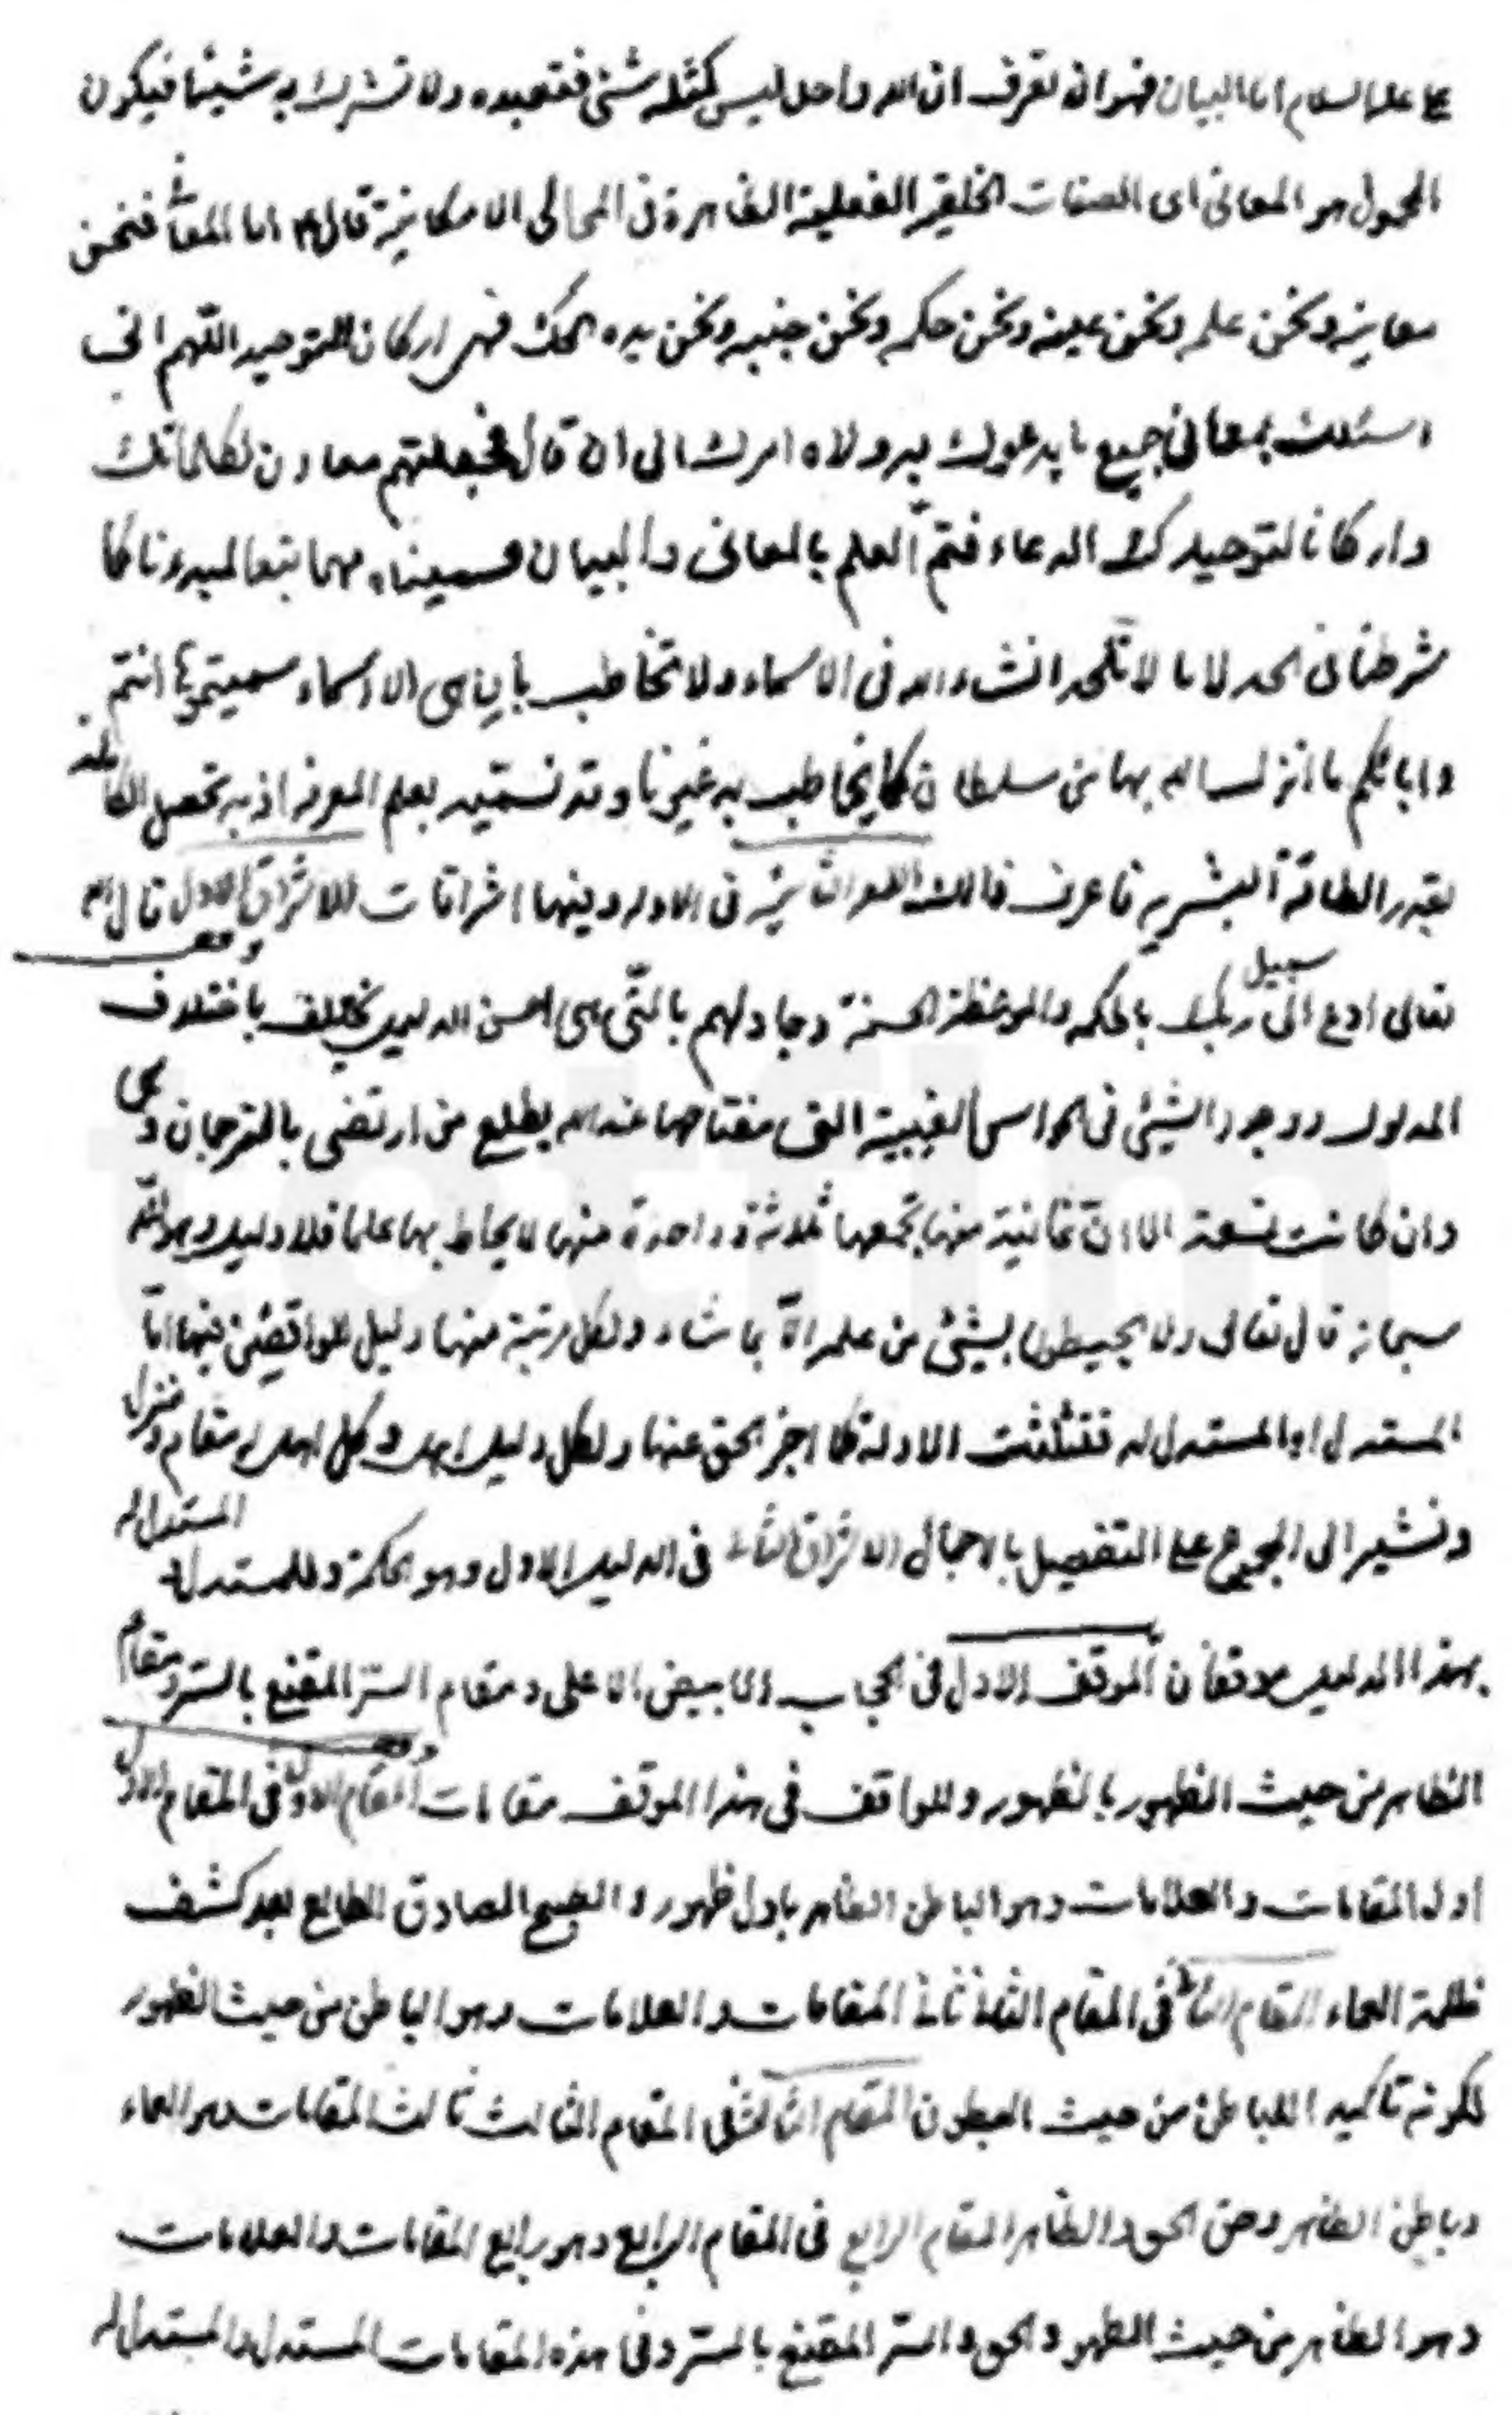 عليه السلام اما البيان فهو ان تعرف ان الله واحد ليس كمثله شئ فتعبده ولا تشرك به شيئا فيكون
المحمول هو المعانى اى الصفات الخلقية الفعلية الظاهرة فى المجالى الامكانية قال ع اما المعانى فنحن
معانيه ونحن علمه ونحن عينه ونحن حكمه ونحن جنبه ونحن يده الحدث فهى اركان للتوحيد اللهم انى
اسئلك بمعانى جميع ما يدعوك به ولاة امرك الى ان قال فجعلتهم معادن لكلماتك
واركانا لتوحيدك الدعاء فتم العلم بالمعانى والبيان فسميناه بهما تبعا لمبدءنا كما
شرطنا فى الحد لاما لا نلحد انشاء الله فى الاسماء ولا تخاطب بان هى الا اسماء سميتموها انتم
واباؤكم ما انزل الله بها من سلطان كما يخاطب به غيرنا وقد نسميه بعلم المعرفة اذ به تحصل
بقدر الطاقة البشرية فاعرف فى الاولى وفيها اشراقات الاشراق الاول قال الله
تعالى ادع الى سبيل ربك بالحكمة والموعظة الحسنة وجادلهم بالتى هى احسن الدليل يختلف باختلاف
المدلول ووجود الشيئ فى الحواس الغيبية التى مفتاحها عند الله يطلع من ارتضى بالترجمان وهى
وان كانت تسعة الا ان ثمانية منها تجمعها ثلاثة وواحدة منها لا يحاط بها علما فلا دليل وهو الله
سبحانه قال تعالى ولا يحيطون بشيئ من علمه الا بما شاء ولكل مرتبة منها دليل للواقفين فيها اما
المستدل او المستدل له فتثلثت الادلة كما اخبر الحق عنها ولكل دليل اهل وكل اهل له مقام ومنزل
ونشير الى الجميع على التفصيل بالاجمال الاشراق الثانى فى الدليل الاول وهو الحكمة وللمستدل والمستدل له
بهذا الدليل موقفان الموقف الاول فى الحجاب الابيض الاعلى ومقام السر المقنع بالسر ومقام
الظاهر من حيث الظهور بالظهور وللواقف فى هذا الموقف مقامات المقام الاول فى المقام الاول
اول المقامات والعلامات وهو الباطن الظاهر باول ظهور والصبح الصادق الطالع بعد كشف
ظلمة العماء المقام الثانى فى المقام الثانى ثانى المقامات والعلامات وهو الباطن من حيث الظهور
لكونه تاكيد اللباطن من حيث البطون المقام الثالث فى المقام الثالث ثالث المقامات وهو العماء
وباطن الظاهر وحق الحق والظاهر المقام الرابع فى المقام الرابع وهو رابع المقامات والعلامات
وهو الظاهر من حيث الظهور والحق والسر المقنع بالسر وفى هذه المقامات المستدل والمستدل له